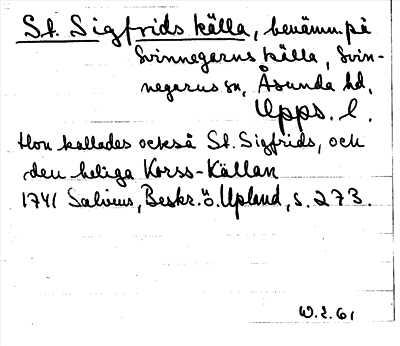 St. Sigfrids källa, benämn. på
Svinnegarns källa, Svin-
negarns sn, Åsunda hd,
Upps. l.
Hon kallades också St. Sigfrids, och
den heliga Korss-Källan
1741 Salvius, Beskr. ö. Upland, s. 273.
W.2.61